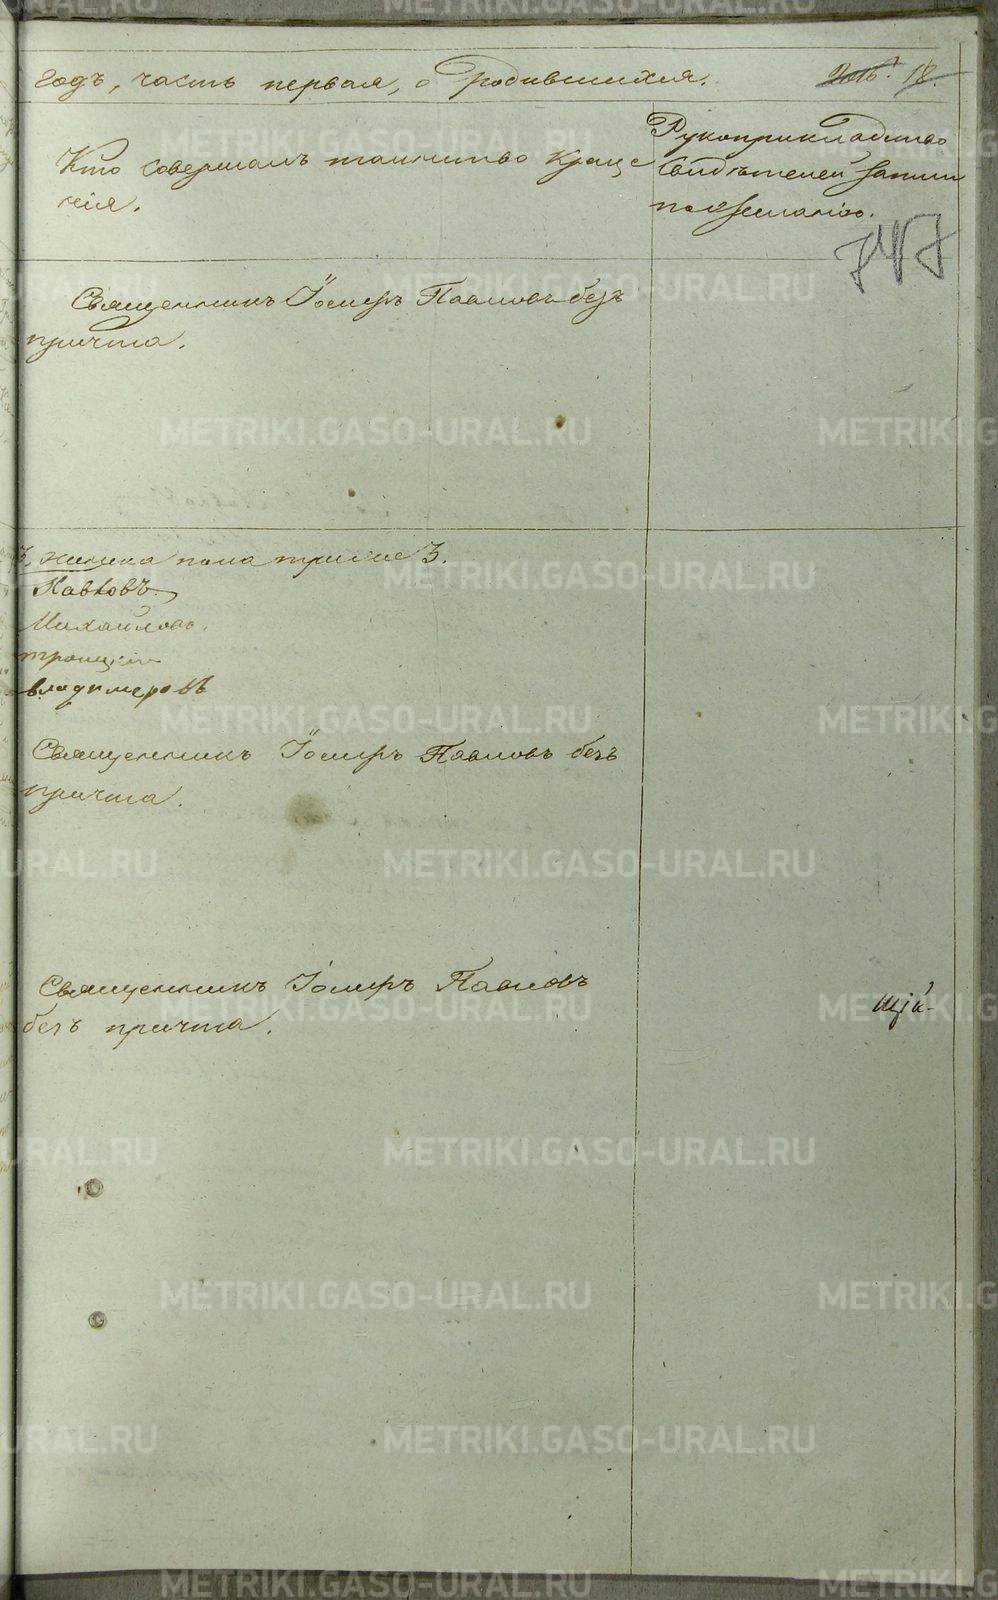 годъ, часть первая, о Родившихся.
Кто совершалъ таинство креще
нія.
Рукоприкладство
свидѣтелей записи
по желанію.
747
Священникъ Іосифъ Павловъ безъ
причта.
3, женска пола трие 3.
Павловъ
Михайловъ.
троицкій
владимеровъ
Священникъ Іосифъ Павловъ безъ
причта.
Священникъ Іосифъ Павловъ
безъ причта.
щій
METRIKI.GASO-URAL.RU